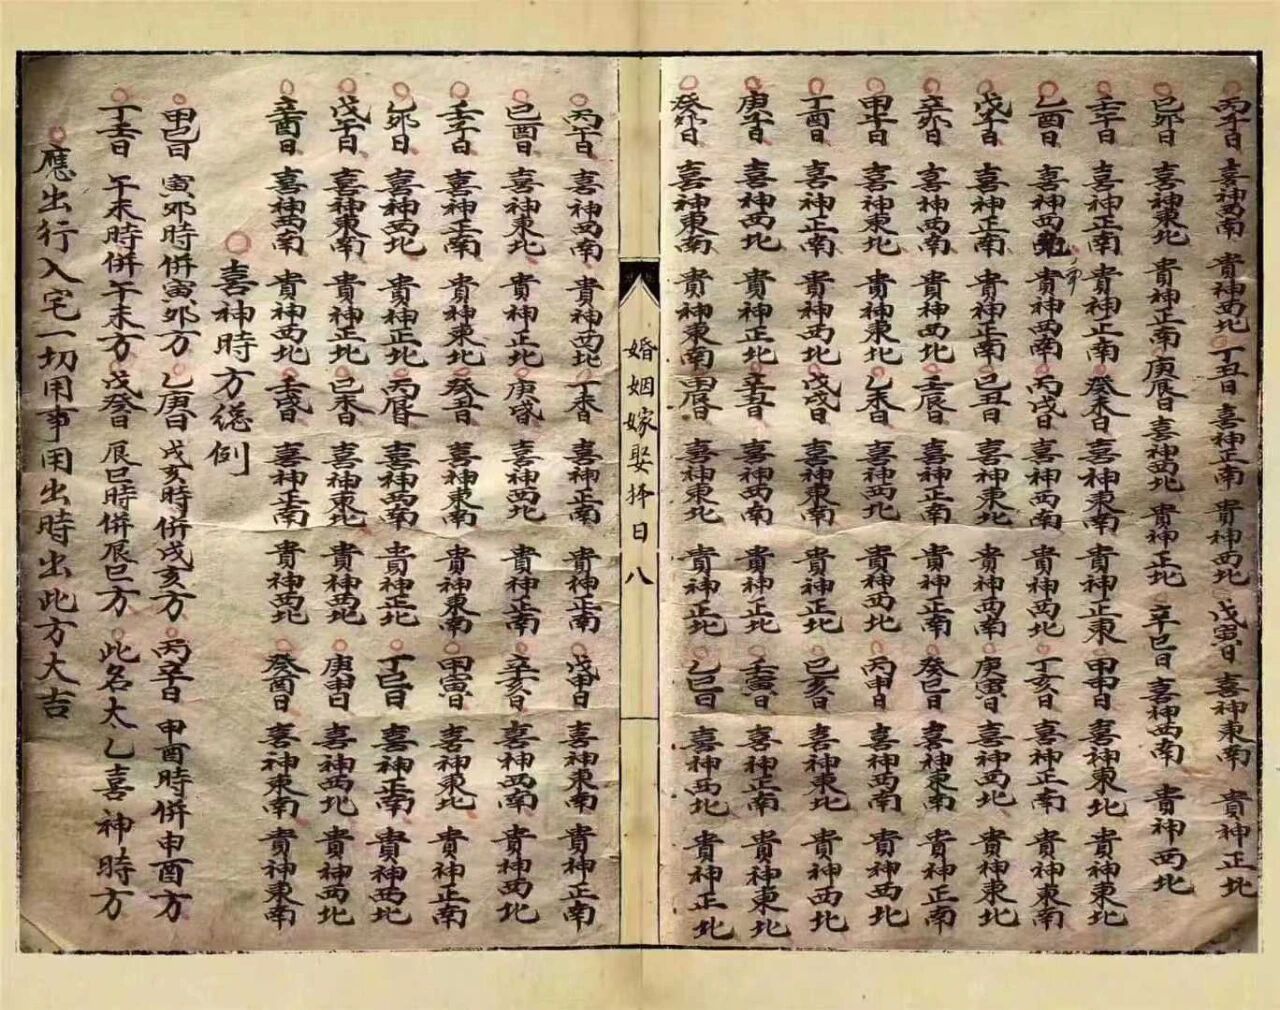 丙子日 喜神西南 貴神西北 丁丑日 喜神正南 貴神西北 戊寅日 喜神東南 貴神正北
己卯日 喜神東北 貴神正南 庚辰日 喜神西北 貴神正北 辛巳日 喜神西南 貴神西北
壬午日 喜神正南 貴神正南 癸未日 喜神東南 貴神正東 甲申日 喜神東北 貴神東北
乙酉日 喜神西 貴神西南 丙戌日 喜神西南 貴神西北 丁亥日 喜神正南 貴神西南
戊子日 喜神正南 貴神正南 己丑日 喜神東北 貴神西南 庚寅日 喜神西北 貴神西北
辛卯日 喜神西南 貴神東北 壬辰日 喜神正南 貴神正南 癸巳日 喜神東南 貴神正南
甲午日 喜神東北 貴神東北 乙未日 喜神西北 貴神西北 丙申日 喜神西南 貴神西北
丁酉日 喜神正南 貴神西北 戊戌日 喜神東南 貴神正北 己亥日 喜神東北 貴神西北
庚子日 喜神西北 貴神正北 辛丑日 喜神西南 貴神正北 壬寅日 喜神正南 貴神東北
癸卯日 喜神東南 貴神東南 甲辰日 喜神東北 貴神正北 乙巳日 喜神西北 貴神正北
婚姻嫁娶擇日 八
丙午日 喜神西南 貴神西北 丁未日 喜神正南 貴神正南 戊申日 喜神東南 貴神正南
己酉日 喜神東北 貴神正北 庚戌日 喜神西北 貴神正南 辛亥日 喜神西南 貴神西北
壬子日 喜神正南 貴神東北 癸丑日 喜神東北 貴神東南 甲寅日 喜神東北 貴神正南
乙卯日 喜神西北 貴神正北 丙辰日 喜神西南 貴神正北 丁巳日 喜神正南 貴神西北
戊午日 喜神東南 貴神正北 己未日 喜神東北 貴神西北 庚申日 喜神西北 貴神西北
辛酉日 喜神西南 貴神西北 壬戌日 喜神正南 貴神西北 癸酉日 喜神東南 貴神東南
喜神時方總例
甲己日 寅卯時併寅卯方 乙庚日 戌亥時併戌亥方 丙辛日 申酉時併申酉方
丁壬日 午未時併午未方 戊癸日 辰巳時併辰巳方 此名太乙喜神時方
應出行入宅一切用事用出時出此方大吉